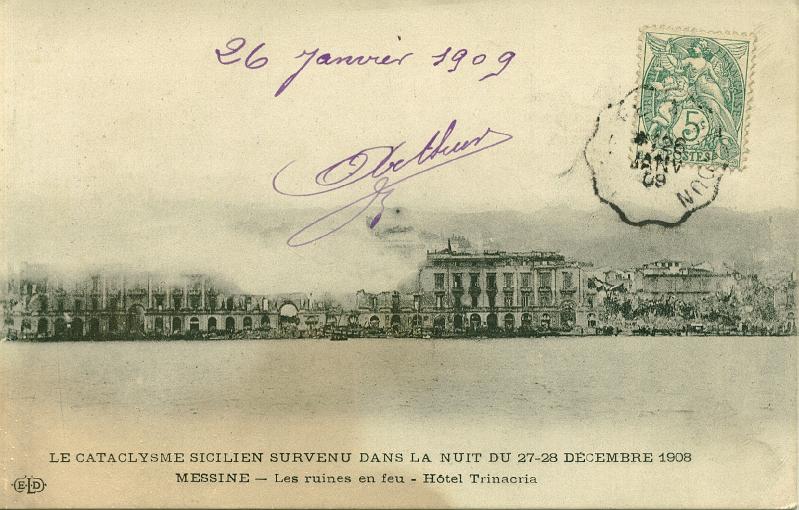 26 janvier 1909
5c
POSTES
26
JANV
09
LE CATACLYSME SICILIEN SURVENU DANS LA NUIT DU 27-28 DÉCEMBRE 1908
MESSINE — Les ruines en feu - Hôtel Trinacria
ELD